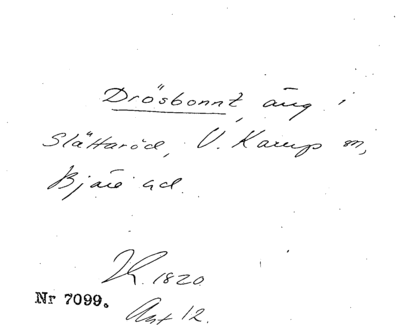 Drösbonnt, äng i
Slättaröd, V. Karups sn,
Bjäre hd.
1820.
Nr 7099.
Akt 12.